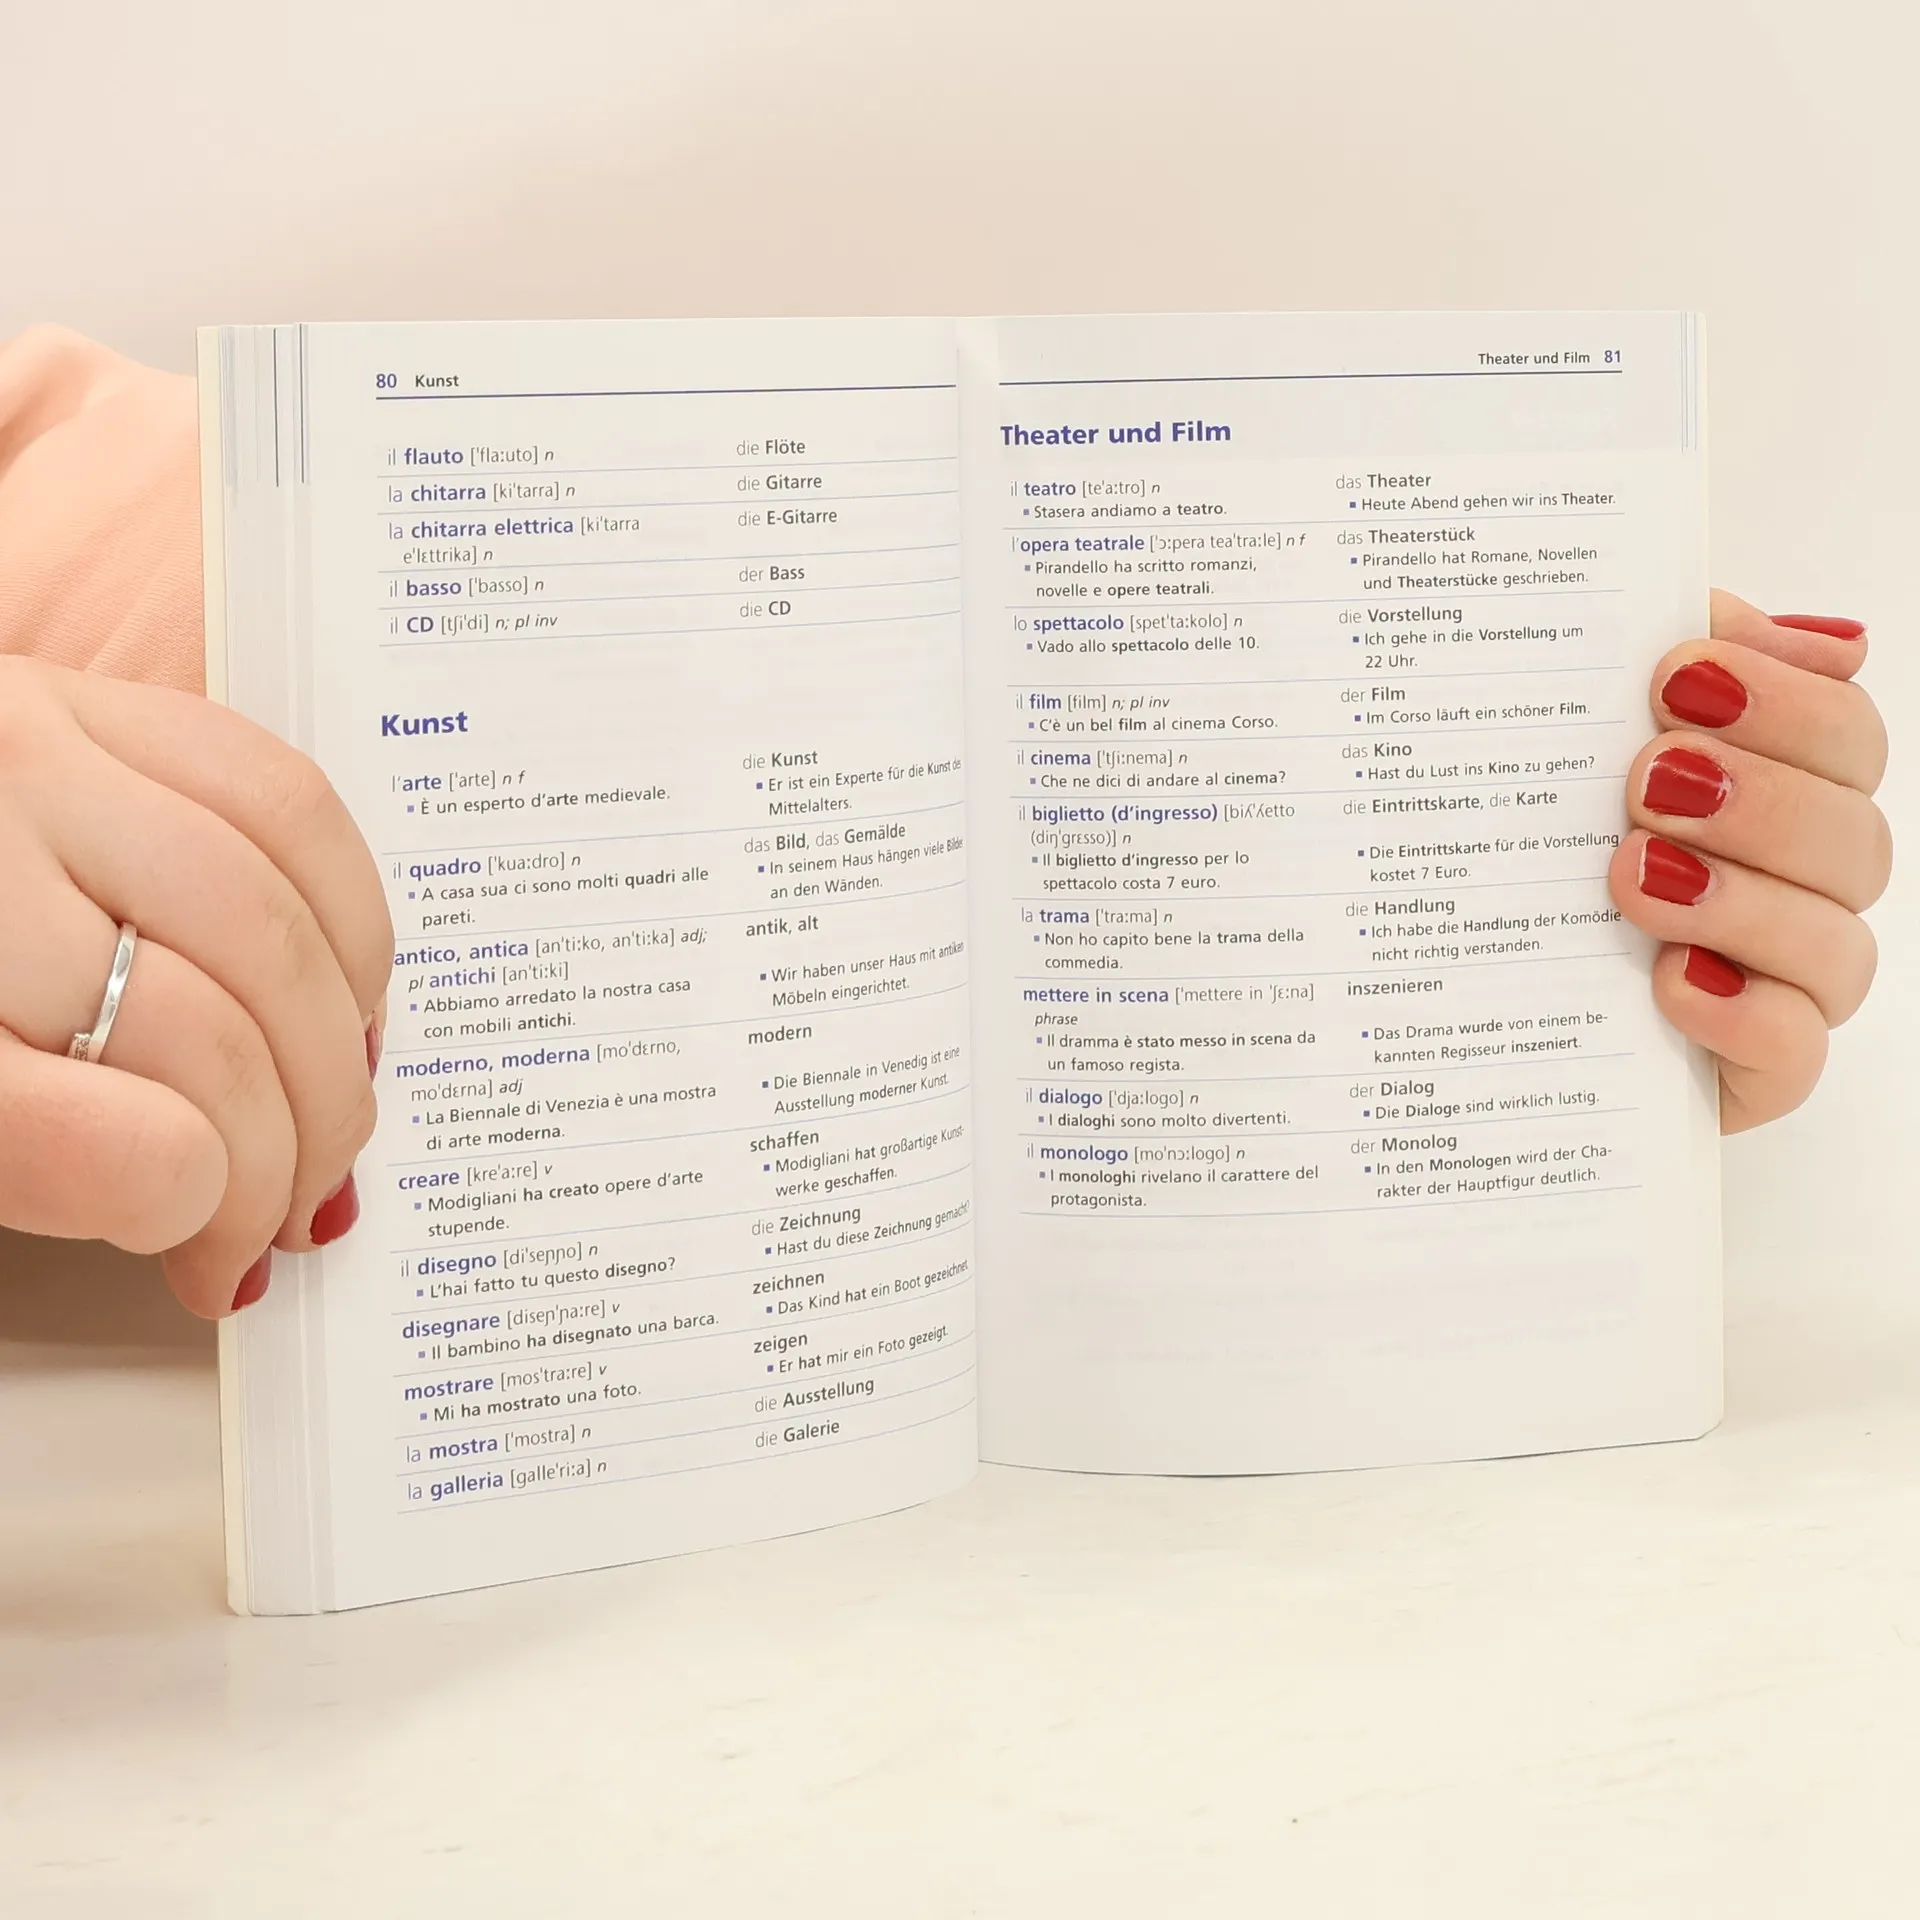 80 Kunst
il flauto ['fla:uto] n die Flöte
la chitarra [ki'tarra] n die Gitarre
la chitarra elettrica [ki'tarra die E-Gitarre
e'lɛttrika] n
il basso ['basso] n der Bass
il CD [tʃi'di] n; pl inv die CD
Kunst
l'arte ['arte] n f die Kunst
▪ È un esperto d'arte medievale. ▪ Er ist ein Experte für die Kunst des
Mittelalters.
il quadro ['kua:dro] n das Bild, das Gemälde
▪ A casa sua ci sono molti quadri alle ▪ In seinem Haus hängen viele Bilder
pareti. an den Wänden.
antico, antica [an'ti:ko, an'ti:ka] adj; antik, alt
pl antichi [an'ti:ki]
▪ Abbiamo arredato la nostra casa ▪ Wir haben unser Haus mit antiken
con mobili antichi. Möbeln eingerichtet.
moderno, moderna [mo'dɛrno, modern
mo'dɛrna] adj
▪ La Biennale di Venezia è una mostra ▪ Die Biennale in Venedig ist eine
di arte moderna. Ausstellung moderner Kunst.
creare [kre'a:re] v schaffen
▪ Modigliani ha creato opere d'arte ▪ Modigliani hat großartige Kunst-
stupende. werke geschaffen.
il disegno [di'seɲɲo] n die Zeichnung
▪ L'hai fatto tu questo disegno? ▪ Hast du diese Zeichnung gemacht?
disegnare [diseɲ'ɲa:re] v zeichnen
▪ Il bambino ha disegnato una barca. ▪ Das Kind hat ein Boot gezeichnet.
mostrare [mos'tra:re] v zeigen
▪ Mi ha mostrato una foto. ▪ Er hat mir ein Foto gezeigt.
la mostra ['mostra] n die Ausstellung
la galleria [galle'ri:a] n die Galerie
Theater und Film 81
Theater und Film
il teatro [te'a:tro] n das Theater
▪ Stasera andiamo a teatro. ▪ Heute Abend gehen wir ins Theater.
l'opera teatrale ['ɔ:pera tea'tra:le] n f das Theaterstück
▪ Pirandello ha scritto romanzi, ▪ Pirandello hat Romane, Novellen
novelle e opere teatrali. und Theaterstücke geschrieben.
lo spettacolo [spet'ta:kolo] n die Vorstellung
▪ Vado allo spettacolo delle 10. ▪ Ich gehe in die Vorstellung um
22 Uhr.
il film [film] n; pl inv der Film
▪ C'è un bel film al cinema Corso. ▪ Im Corso läuft ein schöner Film.
il cinema ['tʃi:nema] n das Kino
▪ Che ne dici di andare al cinema? ▪ Hast du Lust ins Kino zu gehen?
il biglietto (d'ingresso) [biʎ'ʎetto die Eintrittskarte, die Karte
(diŋ'grɛsso)] n
▪ Il biglietto d'ingresso per lo ▪ Die Eintrittskarte für die Vorstellung
spettacolo costa 7 euro. kostet 7 Euro.
la trama ['tra:ma] n die Handlung
▪ Non ho capito bene la trama della ▪ Ich habe die Handlung der Komödie
commedia. nicht richtig verstanden.
mettere in scena ['mettere in 'ʃɛ:na] inszenieren
phrase
▪ Il dramma è stato messo in scena da ▪ Das Drama wurde von einem be-
un famoso regista. kannten Regisseur inszeniert.
il dialogo ['dja:logo] n der Dialog
▪ I dialoghi sono molto divertenti. ▪ Die Dialoge sind wirklich lustig.
il monologo [mo'nɔ:logo] n der Monolog
▪ I monologhi rivelano il carattere del ▪ In den Monologen wird der Cha-
protagonista. rakter der Hauptfigur deutlich.